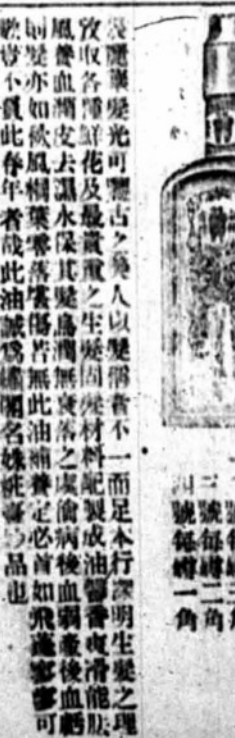 號每樽二角
四號每樽一角
髮光可鑑古之美人以髮稱者不一而足本行深明生髮之理
收各種鮮花及最貴重之生髮固髮材料配製成油馨香爽滑能祛
風養血潤皮去濕水保其髮烏潤無衰落之虞倘病後血弱產後血虧
則髮亦如秋風桐葉零落堪傷若無此油補養定必首如飛蓬寥寥可
數豈不負此春年者哉此油誠為繡閣名姝梳粧品也